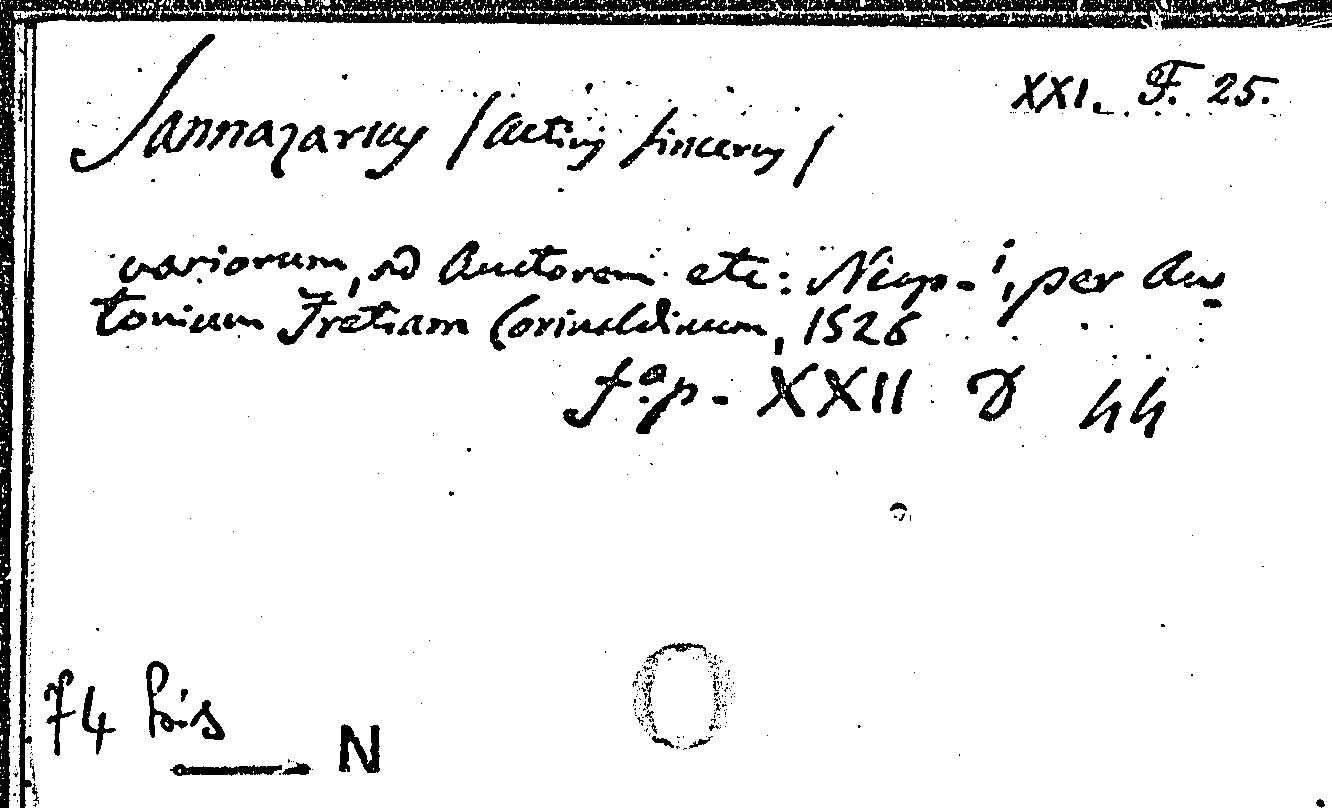 XXI. F. 25.
Sannazarius (Actius Sincerus)
variorum, ad Auctorem etc: Neap-i, per An-
tonium Fretiam Corinaldinum, 1526
f.° p- XXII D 44
74 bis
N